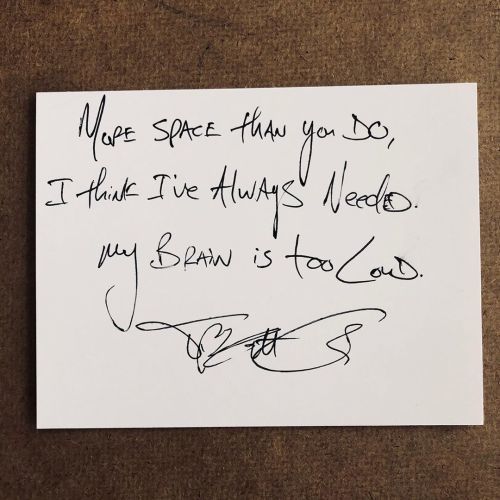 More space than you do,
I think I've Always Needed.
my Brain is too Loud.